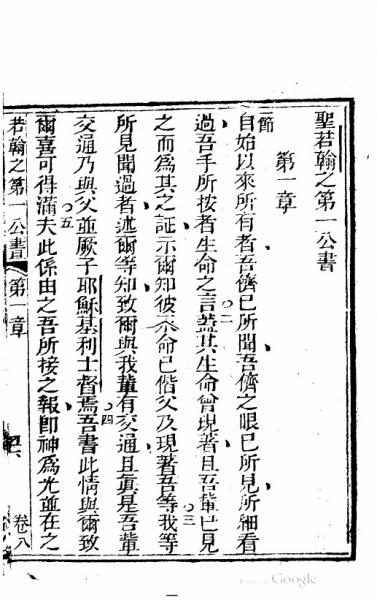 聖若翰之第一公書
第一章
節
自始以來所有者吾儕已所聞吾儕之眼已所見所細看
過吾手所按者生命之言二蓋其生命曾現著且吾輩已見
之而為其之証示爾知彼永命已偕父及現著吾等我等三
所見聞過者述爾等知致爾與我輩有交通且真是吾輩
交通乃與父並厥子耶穌基利士督焉四吾書此情與爾致
爾喜可得滿五夫此係由之吾所接之報卽神為光並在之
若翰之第一公書
第一章
卷八
一
Google